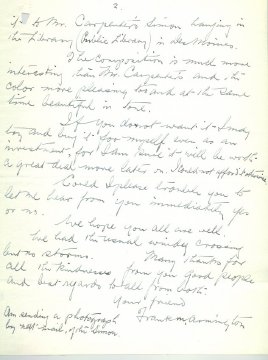 2.
to Mr. Carpenter's Simon hanging in
the Library (Public Library) in Des Moines.
The composition is much more
interesting than Mr. Carpenter's and the
color more pleasing to and at the same
time beautiful in tone.
If you do not want it I may
buy it for myself even as an
investment, for I am sure it will be worth
a great deal more later on.
Could I please trouble you to
let me hear from you immediately yes
or no.
We hope you all are well.
We had the usual windy crossing
but no storms. Many thanks for
all the kindnesses from you good people
and best regards to all from both.
Your friend
Frank M. Armington
Am sending a photograph
by next mail, of the Simon.